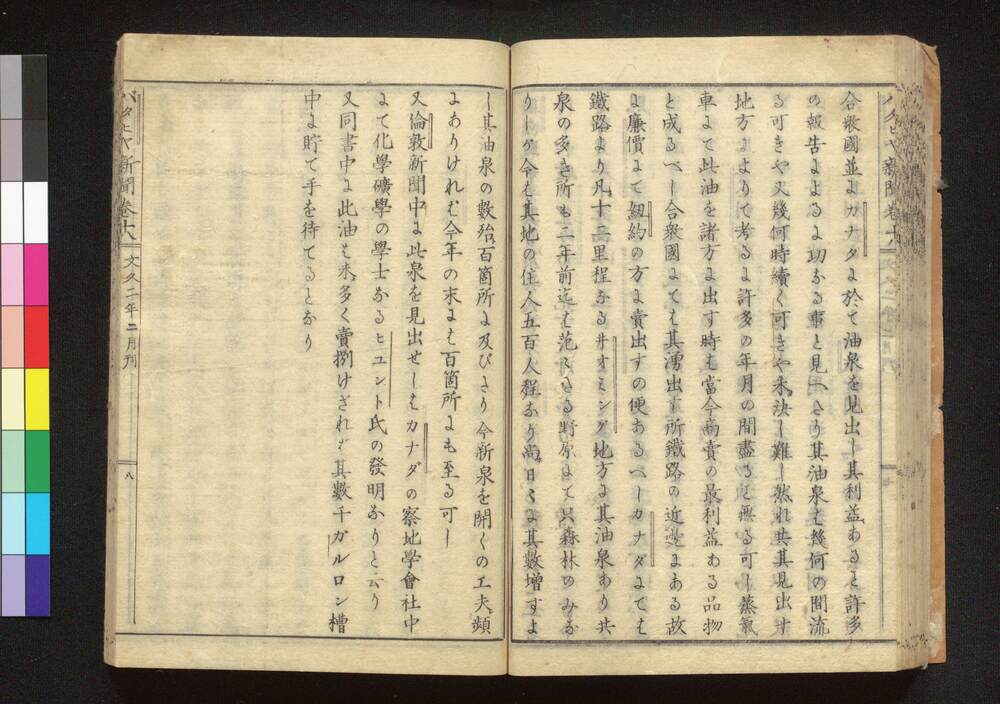 合衆國並よカナタよ於て油泉を見出し其利益あると許多
の報告よよるよ功ある事と見へたり其油泉も幾何の間流
る可きや又幾何時續く可きや未決し難し然れ共其見出せし
地方よよりて考るよ許多の年月の間盡ると無る可し蒸氣
車よて此油を諸方よ出す時も當今商賣の最利益ある品物
と成るべし合衆國よても其湧出す所鐵路の近邊よある故
よ廉價よて紐約の方よ賣出すの便あるべしカナダよても
鐵路より凡十二里程なる井オミング地方よ其油泉あり共
泉の多き所も二年前迄も荒たる野原よて只森林のみな
りしが今も其地の住人五百人程あり尚日々よ其數增すよ
し其油泉の數殆百箇所よ及びたり今新泉を開くの工夫頻
よありけれも今年の末よも百箇所よも至る可し
又倫敦新聞中よ此泉を見出せしもカナダの察地學會社中
よて化學礦學の學士なるヒユント氏の發明なりと云り
又同書中よ此油も未多く賣捌けざれバ其數千ガルロン槽
中よ貯て手を待てるとなり
バタヒヤ新聞卷十八
文久二年二月刊
八
バタヒヤ新聞卷十八